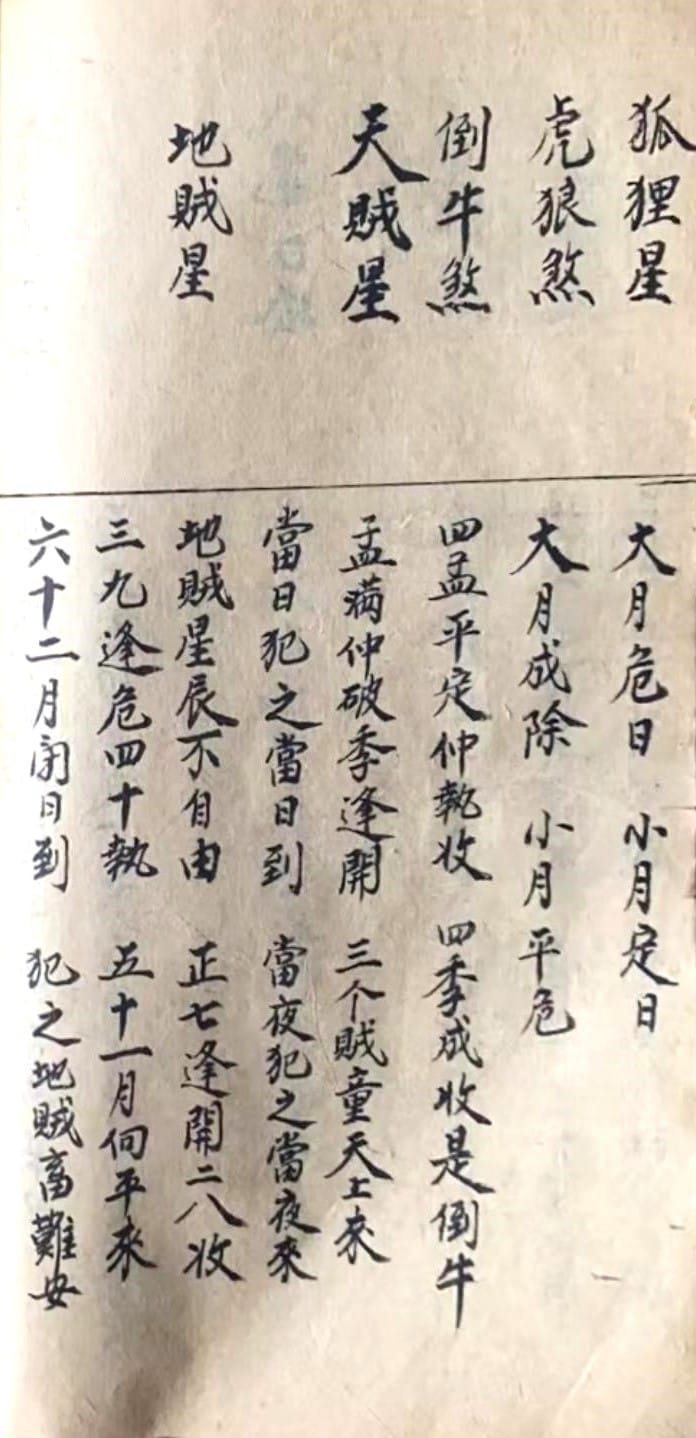 狐狸星
大月危日 小月定日
虎狼煞
大月成除 小月平危
倒牛煞
四孟平定仲執收 四季成收是倒牛
天賊星
孟满仲破季逢開 三个贼童天上來
當日犯之當日到 當夜犯之當夜來
地賊星
地賊星辰不自由 正七逢開二八收
三九逢危四十執 五十一月伺平來
六十二月閉日到 犯之地賊畜難安